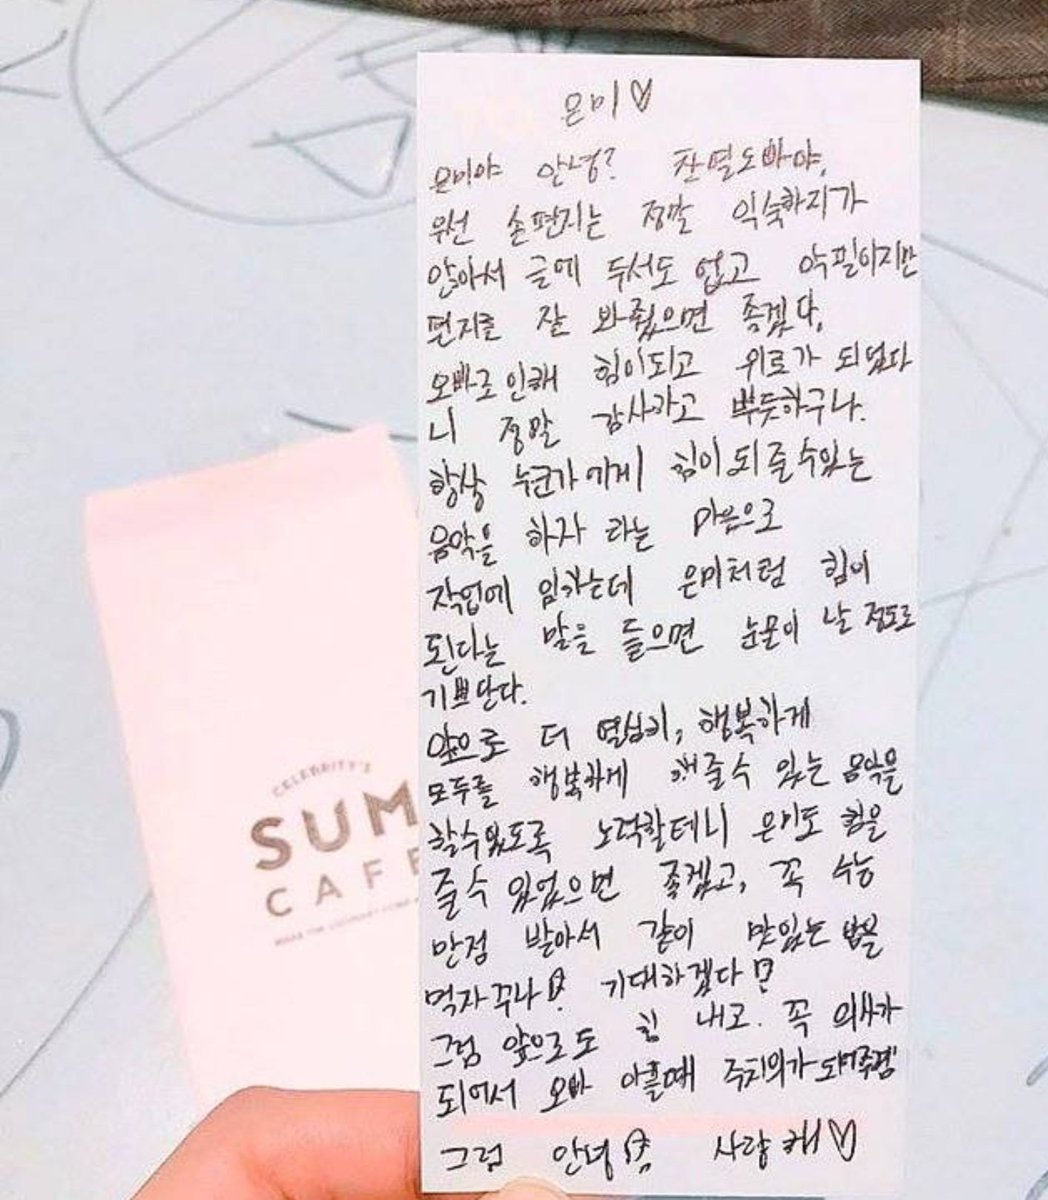 은미♡
은미야 안녕? 찬열오빠야,
우선 손편지는 정말 익숙하지가
않아서 글에 두서도 없고 악필이지만
편지를 잘 봐줬으면 좋겠다,
오빠로인해 힘이되고 위로가 되었다
니 정말 감사하고 뿌듯하구나.
항상 누군가에게 힘이되줄수있는
음악을 하자 라는 마음으로
작업에 임하는데 은미처럼 힘이
된다는 말을 들으면 눈물이 날 정도로
기쁘단다.
앞으로 더 열심히, 행복하게
모두를 행복하게 해줄수 있는 음악을
할수있도록 노력할테니 은미도 힘을
줄수 있었으면 좋겠고, 꼭 수능
만점 받아서 같이 맛있는 밥을
먹자꾸나! 기대하겠다!
그럼 앞으로도 힘 내고. 꼭 의사가
되어서 오빠 아플때 주치의가 되어주렴
그럼 안녕 사랑해♡
CELEBRITY'S
SUM
CAFE